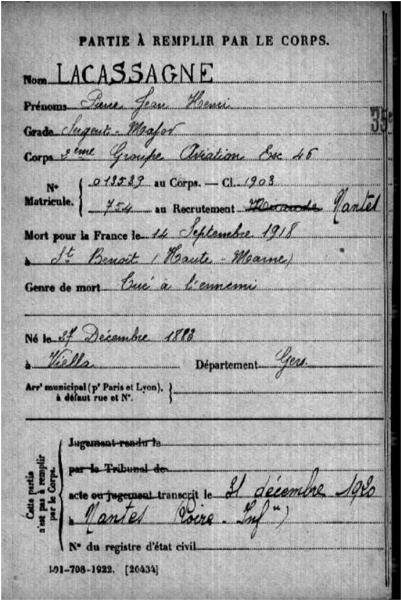 PARTIE À REMPLIR PAR LE CORPS.
Nom LACASSAGNE
Prénoms Pierre Jean Henri
Grade Sergent-Major
35
Corps 2ème Groupe Aviation Esc 46
N° Matricule. 013529 au Corps. — Cl. 1903
754 au Recrutement Nantes
Mort pour la France le 14 Septembre 1918
à St Benoit (Haute-Marne)
Genre de mort Tué à l'ennemi
Né le 27 Décembre 1883
à Viella Département Gers
Arrt municipal (pr Paris et Lyon), à défaut rue et N°.
Cette partie n'est pas à remplir par le Corps.
Jugement rendu le
par le Tribunal de
acte ou jugement transcrit le 31 décembre 1920
à Nantes (Loire-Infre)
N° du registre d'état civil
101-708-1922. [26434]